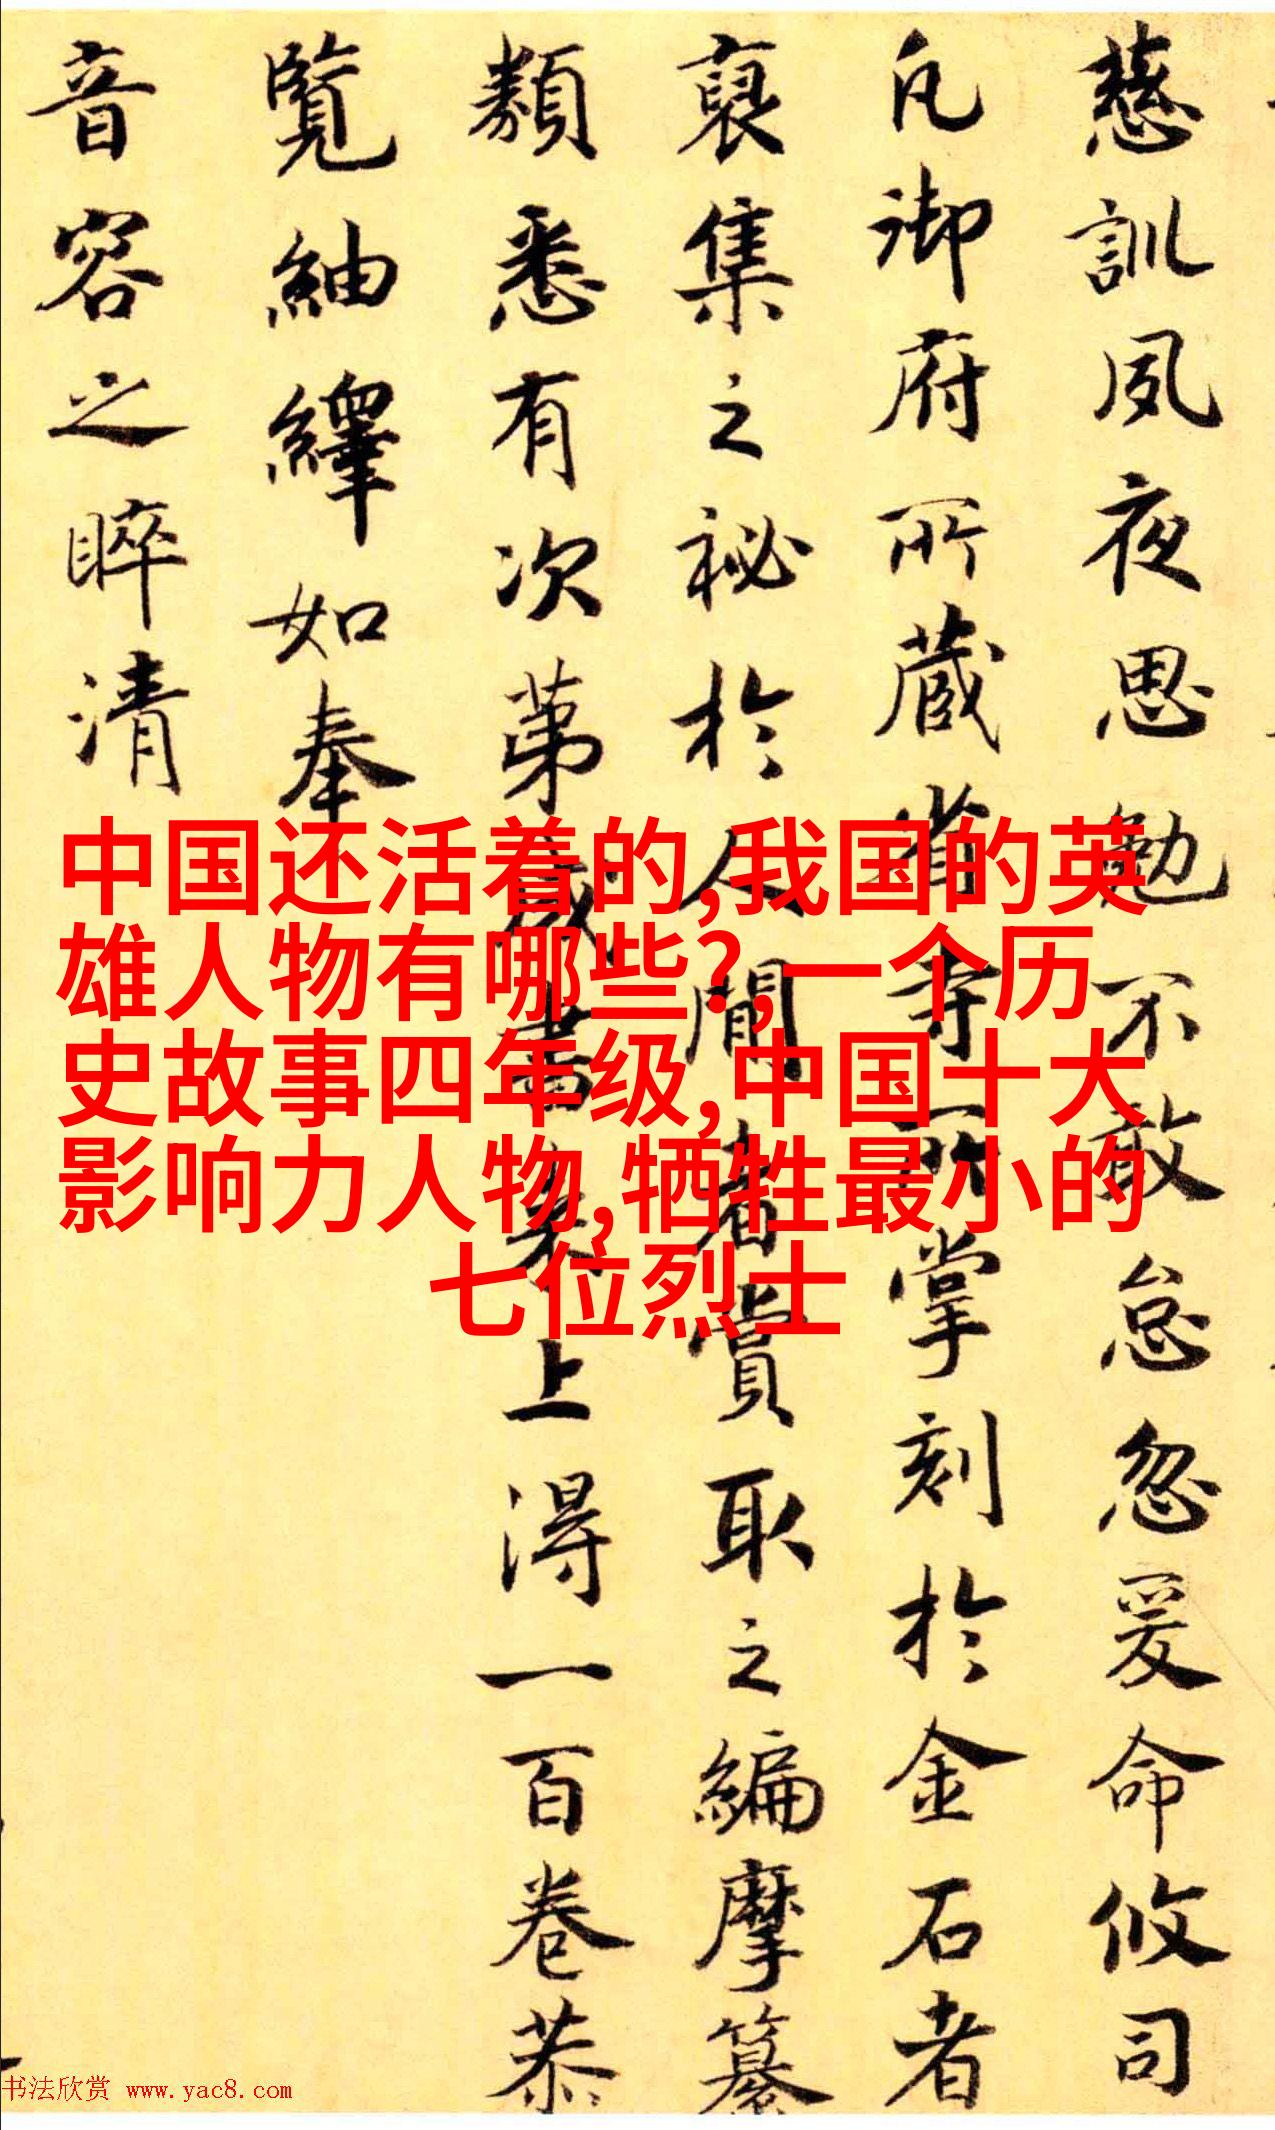 慈訓夙夜思勉不敢怠忽爰命攸司
凡御府所蔵省寺所掌刻於金石者
裒集之秘於人間者賞取之編摩纂
類悉有次第成書奏上得一百卷恭
覽紬繹如奉
音容之睟清
中国还活着的,我国的英
雄人物有哪些?,一个历
史故事四年级,中国十大
影响力人物,牺牲最小的
七位烈士
书法欣赏 www.yac8.com